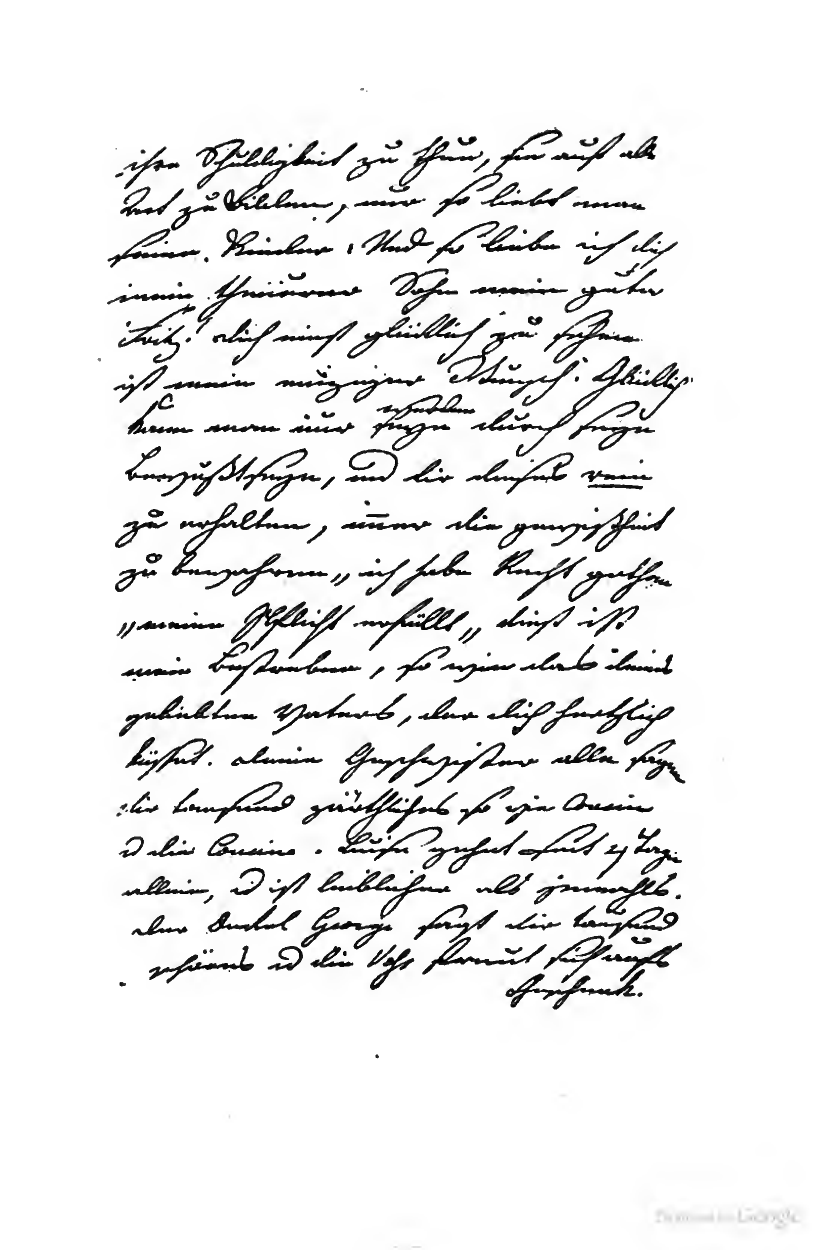 ihre Schuldigkeit zu thun, sie auf alle
Art zu bilden, nur so liebt man
seine Kinder. Und so liebe ich dich
mein theurer Sohn mein guter
Fritz! dich einst glücklich zu sehen
ist mein einziger Wunsch. Glücklich
werden
kann man nur seyn durch
Bewußtseyn, und dir dieses rein
zu erhalten, im̄er die gewißheit
zu bewahren „ich habe Recht gethan
„meine Pflicht erfüllt„ dieß ist
mein Bestreben, so wie das deines
geliebten Vaters, der dich herzlich
küsset. deine Geschwister alle sagen
dir tausend zärtliches so wie Cousin
u die Cousine. Luise gehet seit
allein, u ist lieblicher als jemahls.
der Onkel George sagt dir tausend
schönes u die freut sich aufs
Geschenk.
Digitized by Google